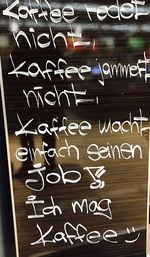 Kaffee redet
nicht,
Kaffee jammert
nicht.
Kaffee wacht
einfach seinen
Job!
Ich mag
Kaffee :)